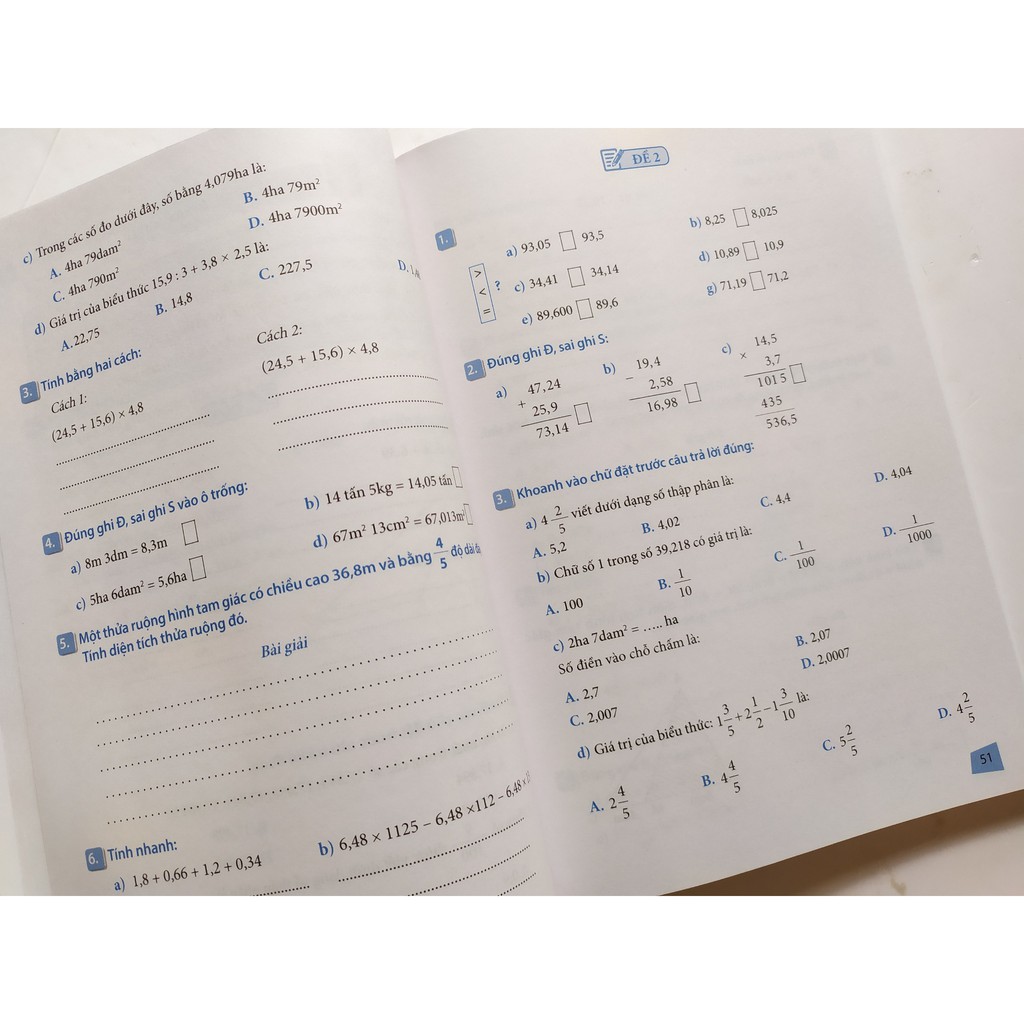 c) Trong các số đo dưới đây, số bằng 4,079ha là:
A. 4ha 79dam² B. 4ha 79m²
C. 4ha 790m² D. 4ha 7900m²
d) Giá trị của biểu thức 15,9 : 3 + 3,8 × 2,5 là:
A. 22,75 B. 14,8 C. 227,5 D.
3. Tính bằng hai cách:
Cách 1: Cách 2:
(24,5 + 15,6) × 4,8 (24,5 + 15,6) × 4,8
4. Đúng ghi Đ, sai ghi S vào ô trống:
a) 8m 3dm = 8,3m □ b) 14 tấn 5kg = 14,05 tấn □
c) 5ha 6dam² = 5,6ha □ d) 67m² 13cm² = 67,013m² □
5. Một thửa ruộng hình tam giác có chiều cao 36,8m và bằng 4/5 độ dài
Tính diện tích thửa ruộng đó.
Bài giải
6. Tính nhanh:
a) 1,8 + 0,66 + 1,2 + 0,34 b) 6,48 × 1125 – 6,48 × 112 – 6,48 ×
ĐỀ 2
1.
> < = ?
a) 93,05 □ 93,5 b) 8,25 □ 8,025
c) 34,41 □ 34,14 d) 10,89 □ 10,9
e) 89,600 □ 89,6 g) 71,19 □ 71,2
2. Đúng ghi Đ, sai ghi S:
a) b) c)
47,24 19,4 14,5
+ – ×
25,9 2,58 3,7
73,14 □ 16,98 □ 1015 □
435
536,5
3. Khoanh vào chữ đặt trước câu trả lời đúng:
a) 4 2/5 viết dưới dạng số thập phân là:
A. 5,2 B. 4,02 C. 4,4 D. 4,04
b) Chữ số 1 trong số 39,218 có giá trị là:
A. 100 B. 1/10 C. 1/100 D. 1/1000
c) 2ha 7dam² = ..... ha
Số điền vào chỗ chấm là:
A. 2,7 B. 2,07
C. 2,007 D. 2,0007
d) Giá trị của biểu thức: 1 3/5 + 2 1/2 – 1 3/10 là:
A. 2 4/5 B. 4 4/5 C. 5 2/5 D. 4 2/5
51